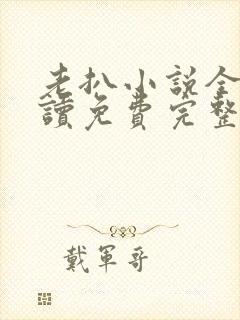 老扒小説全
讀免費完整
戴軍哥